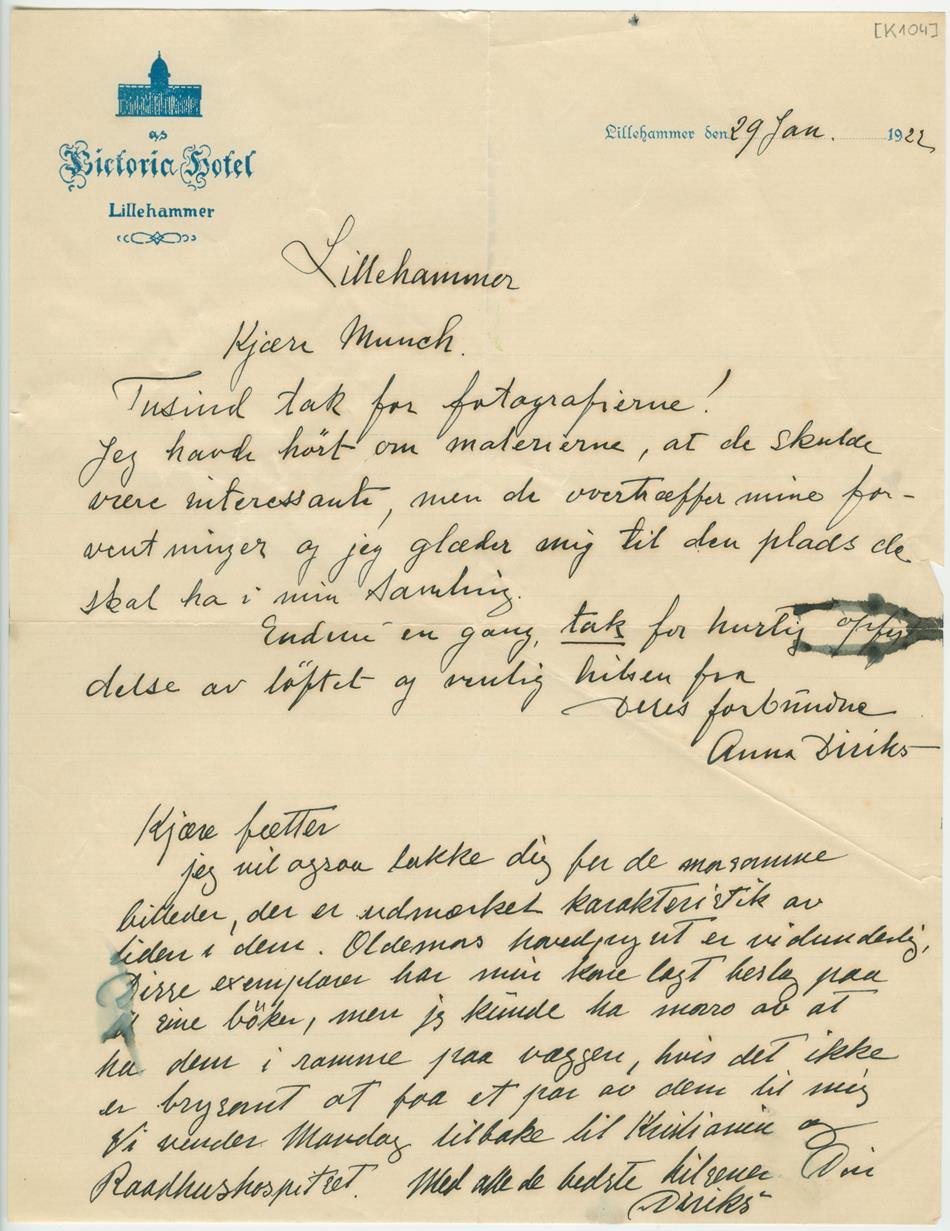 [K104]
a/s
Victoria Hotel
Lillehammer
Lillehammer den 29 Jan. 1922
Lillehammer
Kjære Munch.
Tusind tak for fotografierne!
Jeg havde hört om malerierne, at de skulde
være interessante, men de overtræffer mine for-
ventninger og jeg glæder mig til den plads de
skal ha i min samling.
Endnu en gang, tak for hurtig opfyl
delse av löftet og venlig hilsen fra
Deres forbundne
Anna Diriks
Kjære fætter
jeg vil ogsaa takke dig for de morsomme
billeder, der er udmærket karakteristik av
tiden i dem. Oldemors hovedpynt er vidunderlig,
Disse exemplarer har min kone lagt beslag paa
til sine böker, men jeg kunde ha moro av at
ha dem i ramme paa væggen, hvis det ikke
er brysomt at faa et par av dem til mig
Vi vender Mandag tilbake til Kristiania og
Raadhushospitset. Med alle de bedste hilsener Din
Diriks